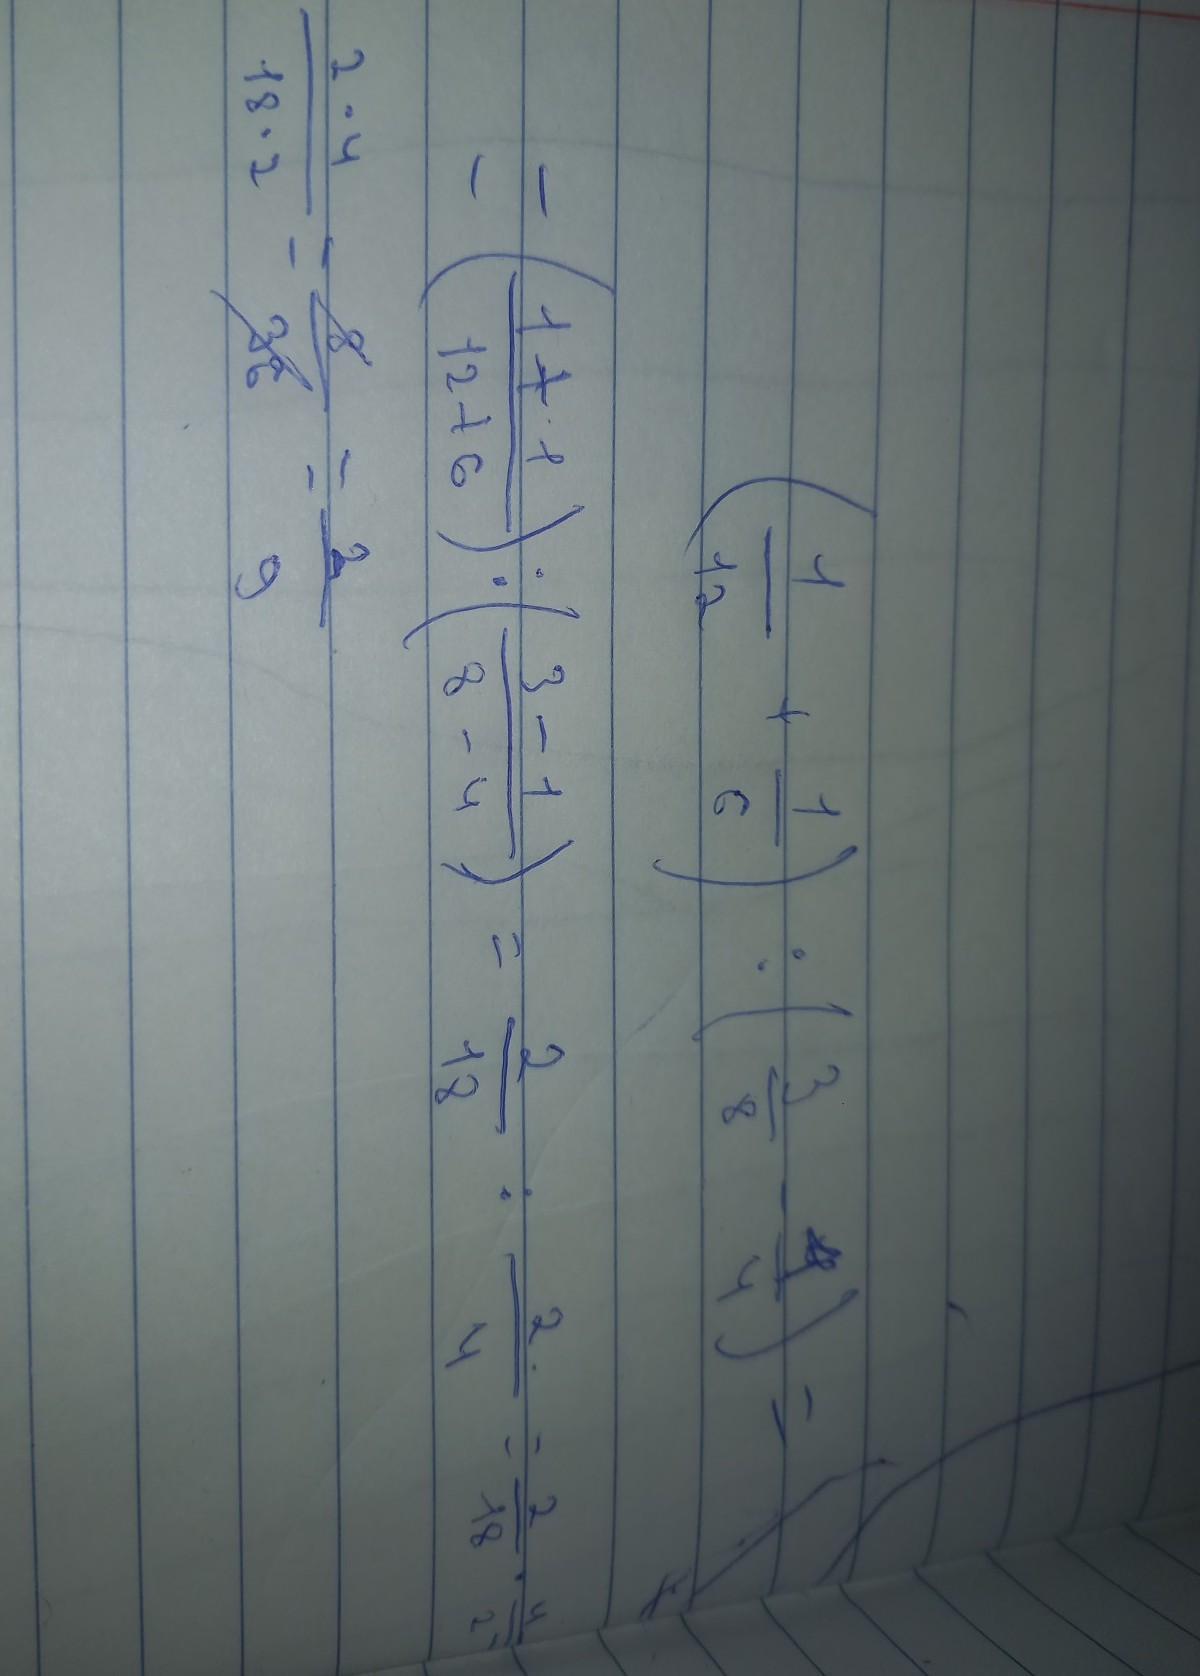 (1/12 + 1/6) : (3/8 - 1/4) =
= (1+1/12+6) : (3-1/8-4) = 2/18 : 2/4 = 2/18 · 4/2
2·4/18·2 = 8/36 = 2/9